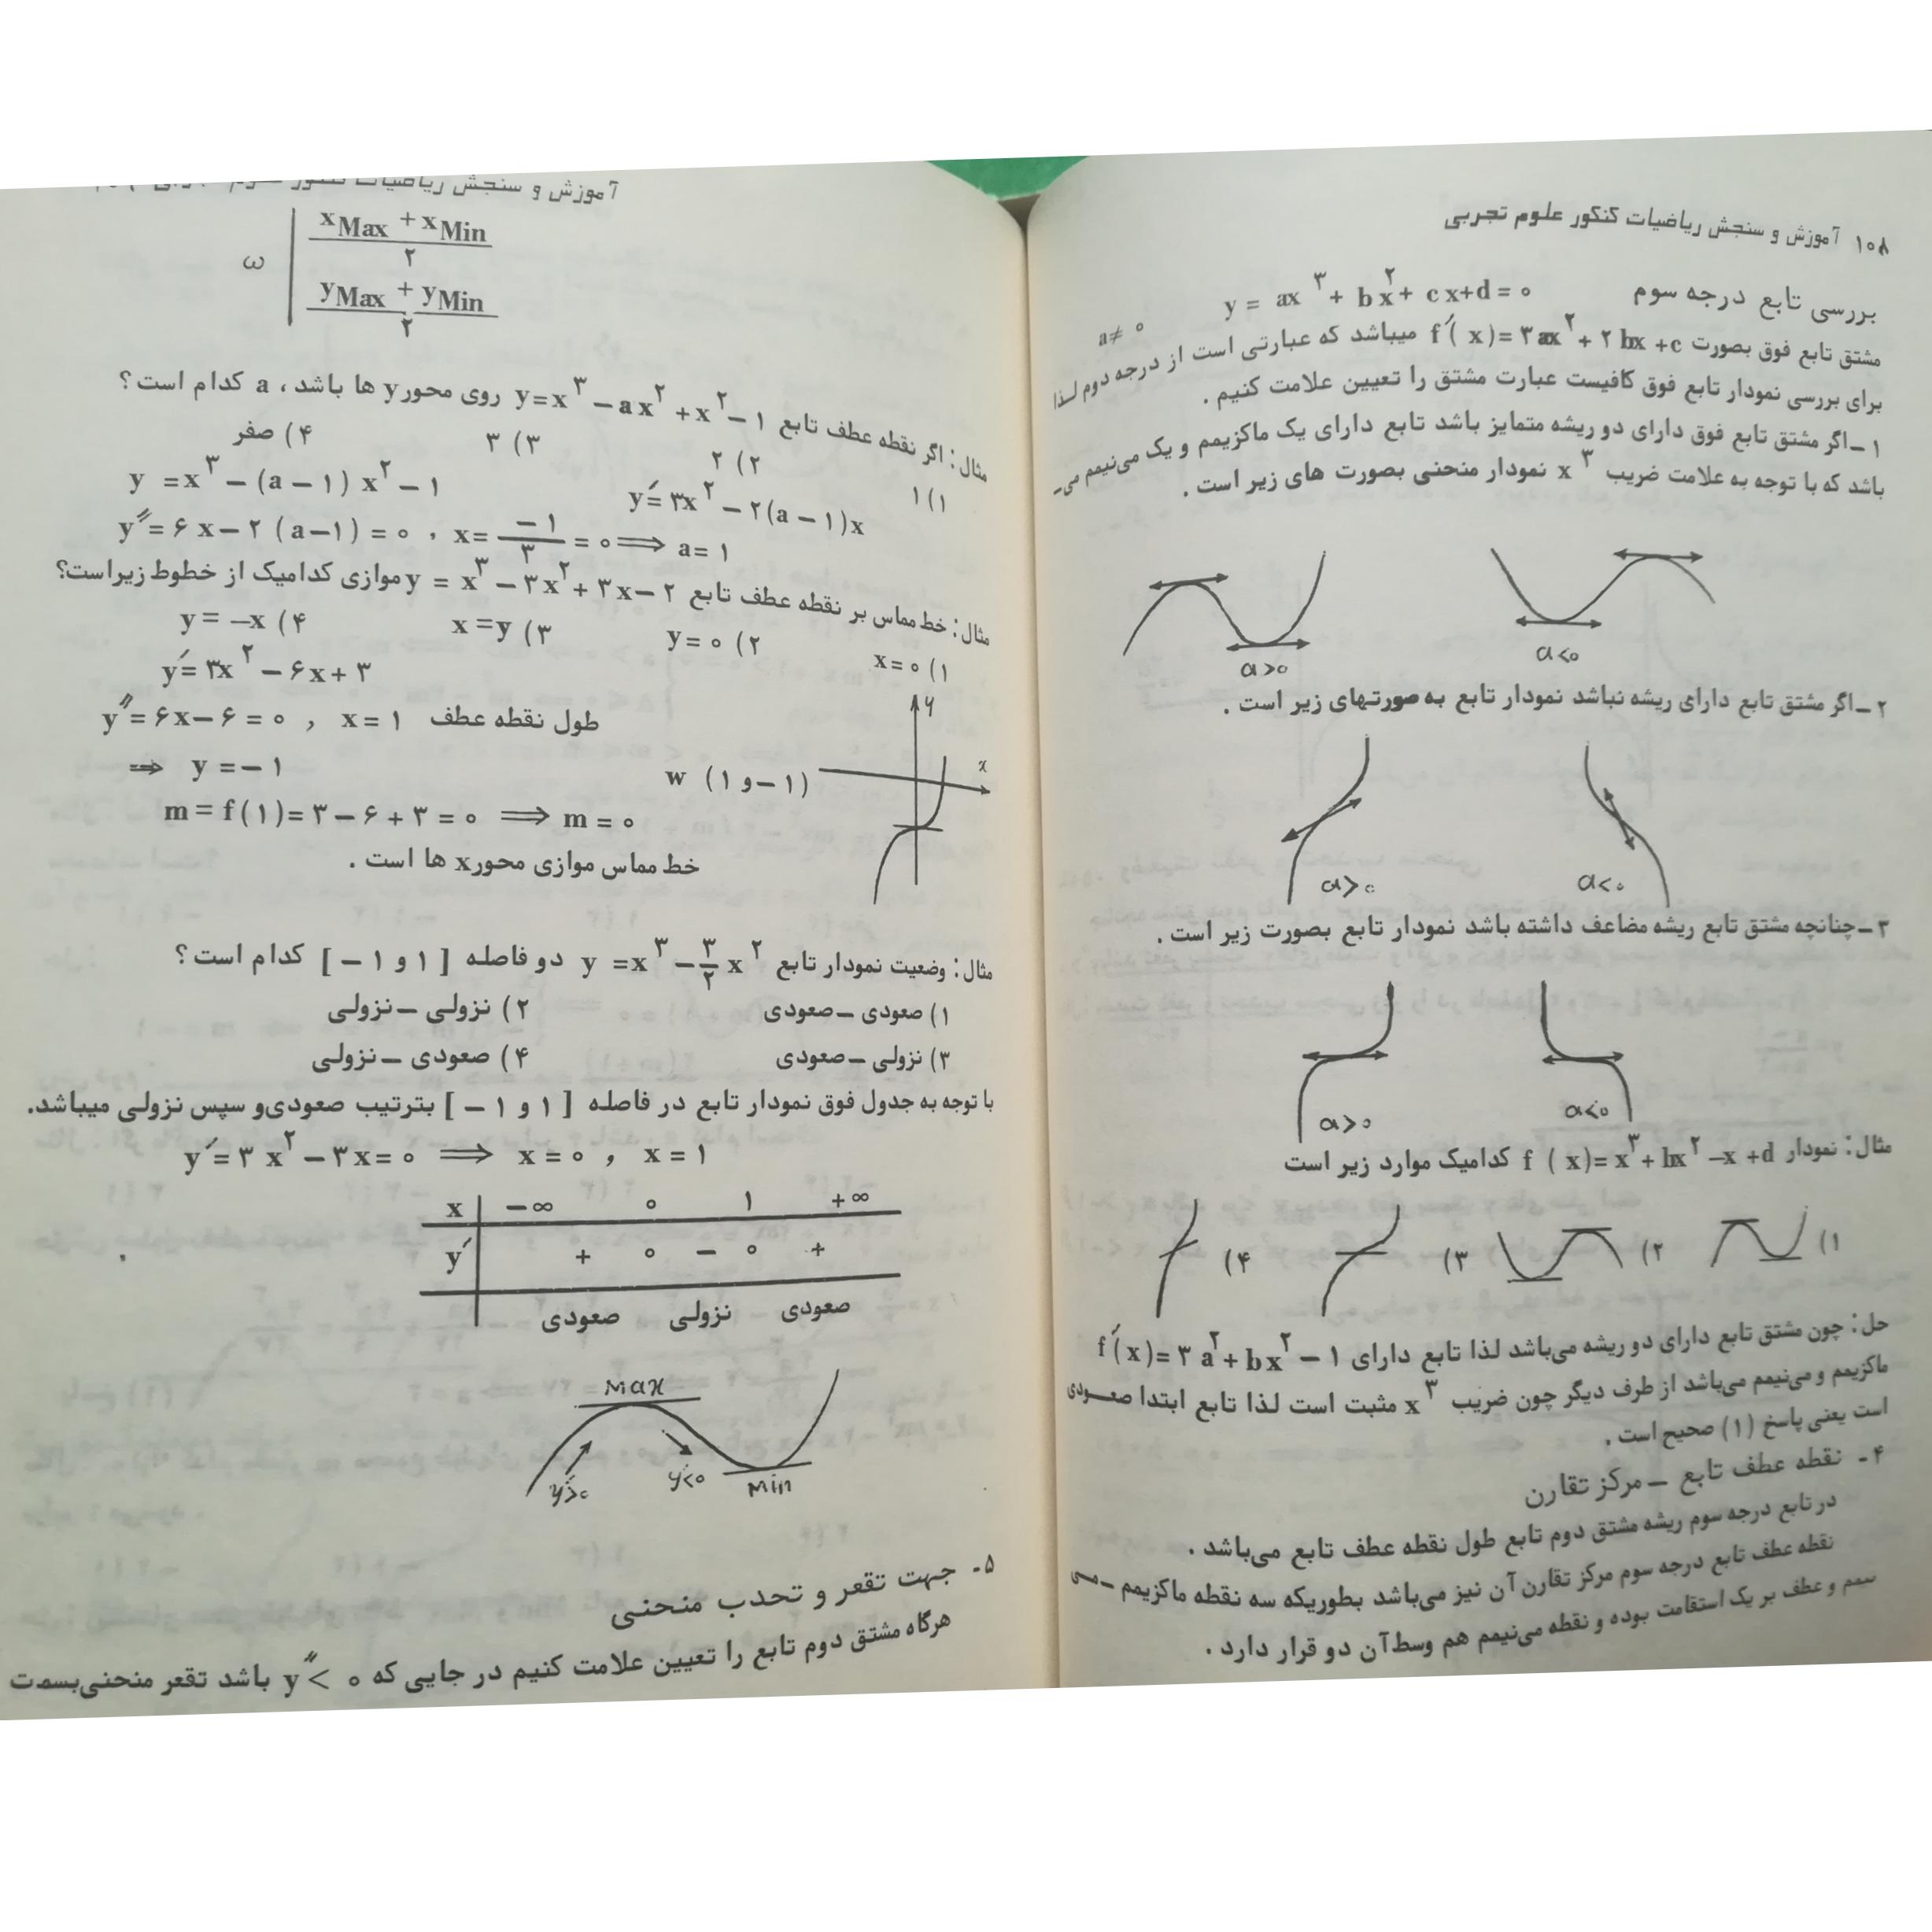 ۱۰۸ آموزش و سنجش ریاضیات کنکور علوم تجربی
بررسی تابع درجه سوم y = ax³ + bx² + cx+d = ۰
a≠ ۰
مشتق تابع فوق بصورت f′( x)= ۳ax² + ۲bx +c میباشد که عبارتی است از درجه دوم لذا
برای بررسی نمودار تابع فوق کافیست عبارت مشتق را تعیین علامت کنیم .
۱ – اگر مشتق تابع فوق دارای دو ریشه متمایز باشد تابع دارای یک ماکزیمم و یک می‌نیمم می‌-
باشد که با توجه به علامت ضریب x³ نمودار منحنی بصورت های زیر است .
a>۰ a<۰
۲ – اگر مشتق تابع دارای ریشه نباشد نمودار تابع به صورتهای زیر است .
a>۰ a<۰
۳ – چنانچه مشتق تابع ریشه مضاعف داشته باشد نمودار تابع بصورت زیر است .
a>۰ a<۰
مثال : نمودار f ( x)= x³ + bx² –x +d کدامیک موارد زیر است
۱) ۲) ۳) ۴)
حل : چون مشتق تابع دارای دو ریشه می‌باشد لذا تابع دارای f′( x)= ۳ a² + bx² – ۱
ماکزیمم و می‌نیمم می‌باشد از طرف دیگر چون ضریب x³ مثبت است لذا تابع ابتدا صعودی
است یعنی پاسخ (۱) صحیح است .
۴ - نقطه عطف تابع – مرکز تقارن
در تابع درجه سوم ریشه مشتق دوم تابع طول نقطه عطف تابع می‌باشد .
نقطه عطف تابع درجه سوم مرکز تقارن آن نیز می‌باشد بطوریکه سه نقطه ماکزیمم – می
نیمم و عطف بر یک استقامت بوده و نقطه می‌نیمم هم وسط آن دو قرار دارد .
آموزش و سنجش ریاضیات کنکور علوم
ω | xMax + xMin / ۲
yMax + yMin / ۲
مثال : اگر نقطه عطف تابع y=x³ – ax² + x² – ۱ روی محور y ها باشد ، a کدام است ؟
۱) ۱ ۲) ۲ ۳) ۳ ۴) صفر
y =x³ – (a – ۱) x² – ۱ y′= ۳x² – ۲(a – ۱)x
y″= ۶ x– ۲ (a–۱) = ۰ , x= –۱/۳ = ۰ ⟹ a= ۱
مثال : خط مماس بر نقطه عطف تابع y = x³ – ۳x² + ۳x– ۲ موازی کدامیک از خطوط زیر است؟
۱) x= ۰ ۲) y= ۰ ۳) x=y ۴) y= –x
y′= ۳x² – ۶x+ ۳
y″= ۶x– ۶ = ۰ , x= ۱ طول نقطه عطف
⟹ y = – ۱ w (۱ و –۱)
y
x
m = f(۱)= ۳ – ۶ + ۳ = ۰ ⟹ m = ۰
خط مماس موازی محور x ها است .
مثال : وضعیت نمودار تابع y =x³ – ۳/۲ x² دو فاصله [ ۱ و ۱ – ] کدام است ؟
۱) صعودی – صعودی ۲) نزولی – نزولی
۳) نزولی – صعودی ۴) صعودی – نزولی
با توجه به جدول فوق نمودار تابع در فاصله [ ۱ و ۱ – ] بترتیب صعودی و سپس نزولی میباشد.
y′= ۳ x² – ۳x= ۰ ⟹ x= ۰ , x= ۱
x –∞ ۰ ۱ +∞
y′ + ۰ – ۰ +
صعودی نزولی صعودی
Max
y′>۰ y′<۰ Min
۵ - جهت تقعر و تحدب منحنی
هرگاه مشتق دوم تابع را تعیین علامت کنیم در جایی که y″< ۰ باشد تقعر منحنی بسمت